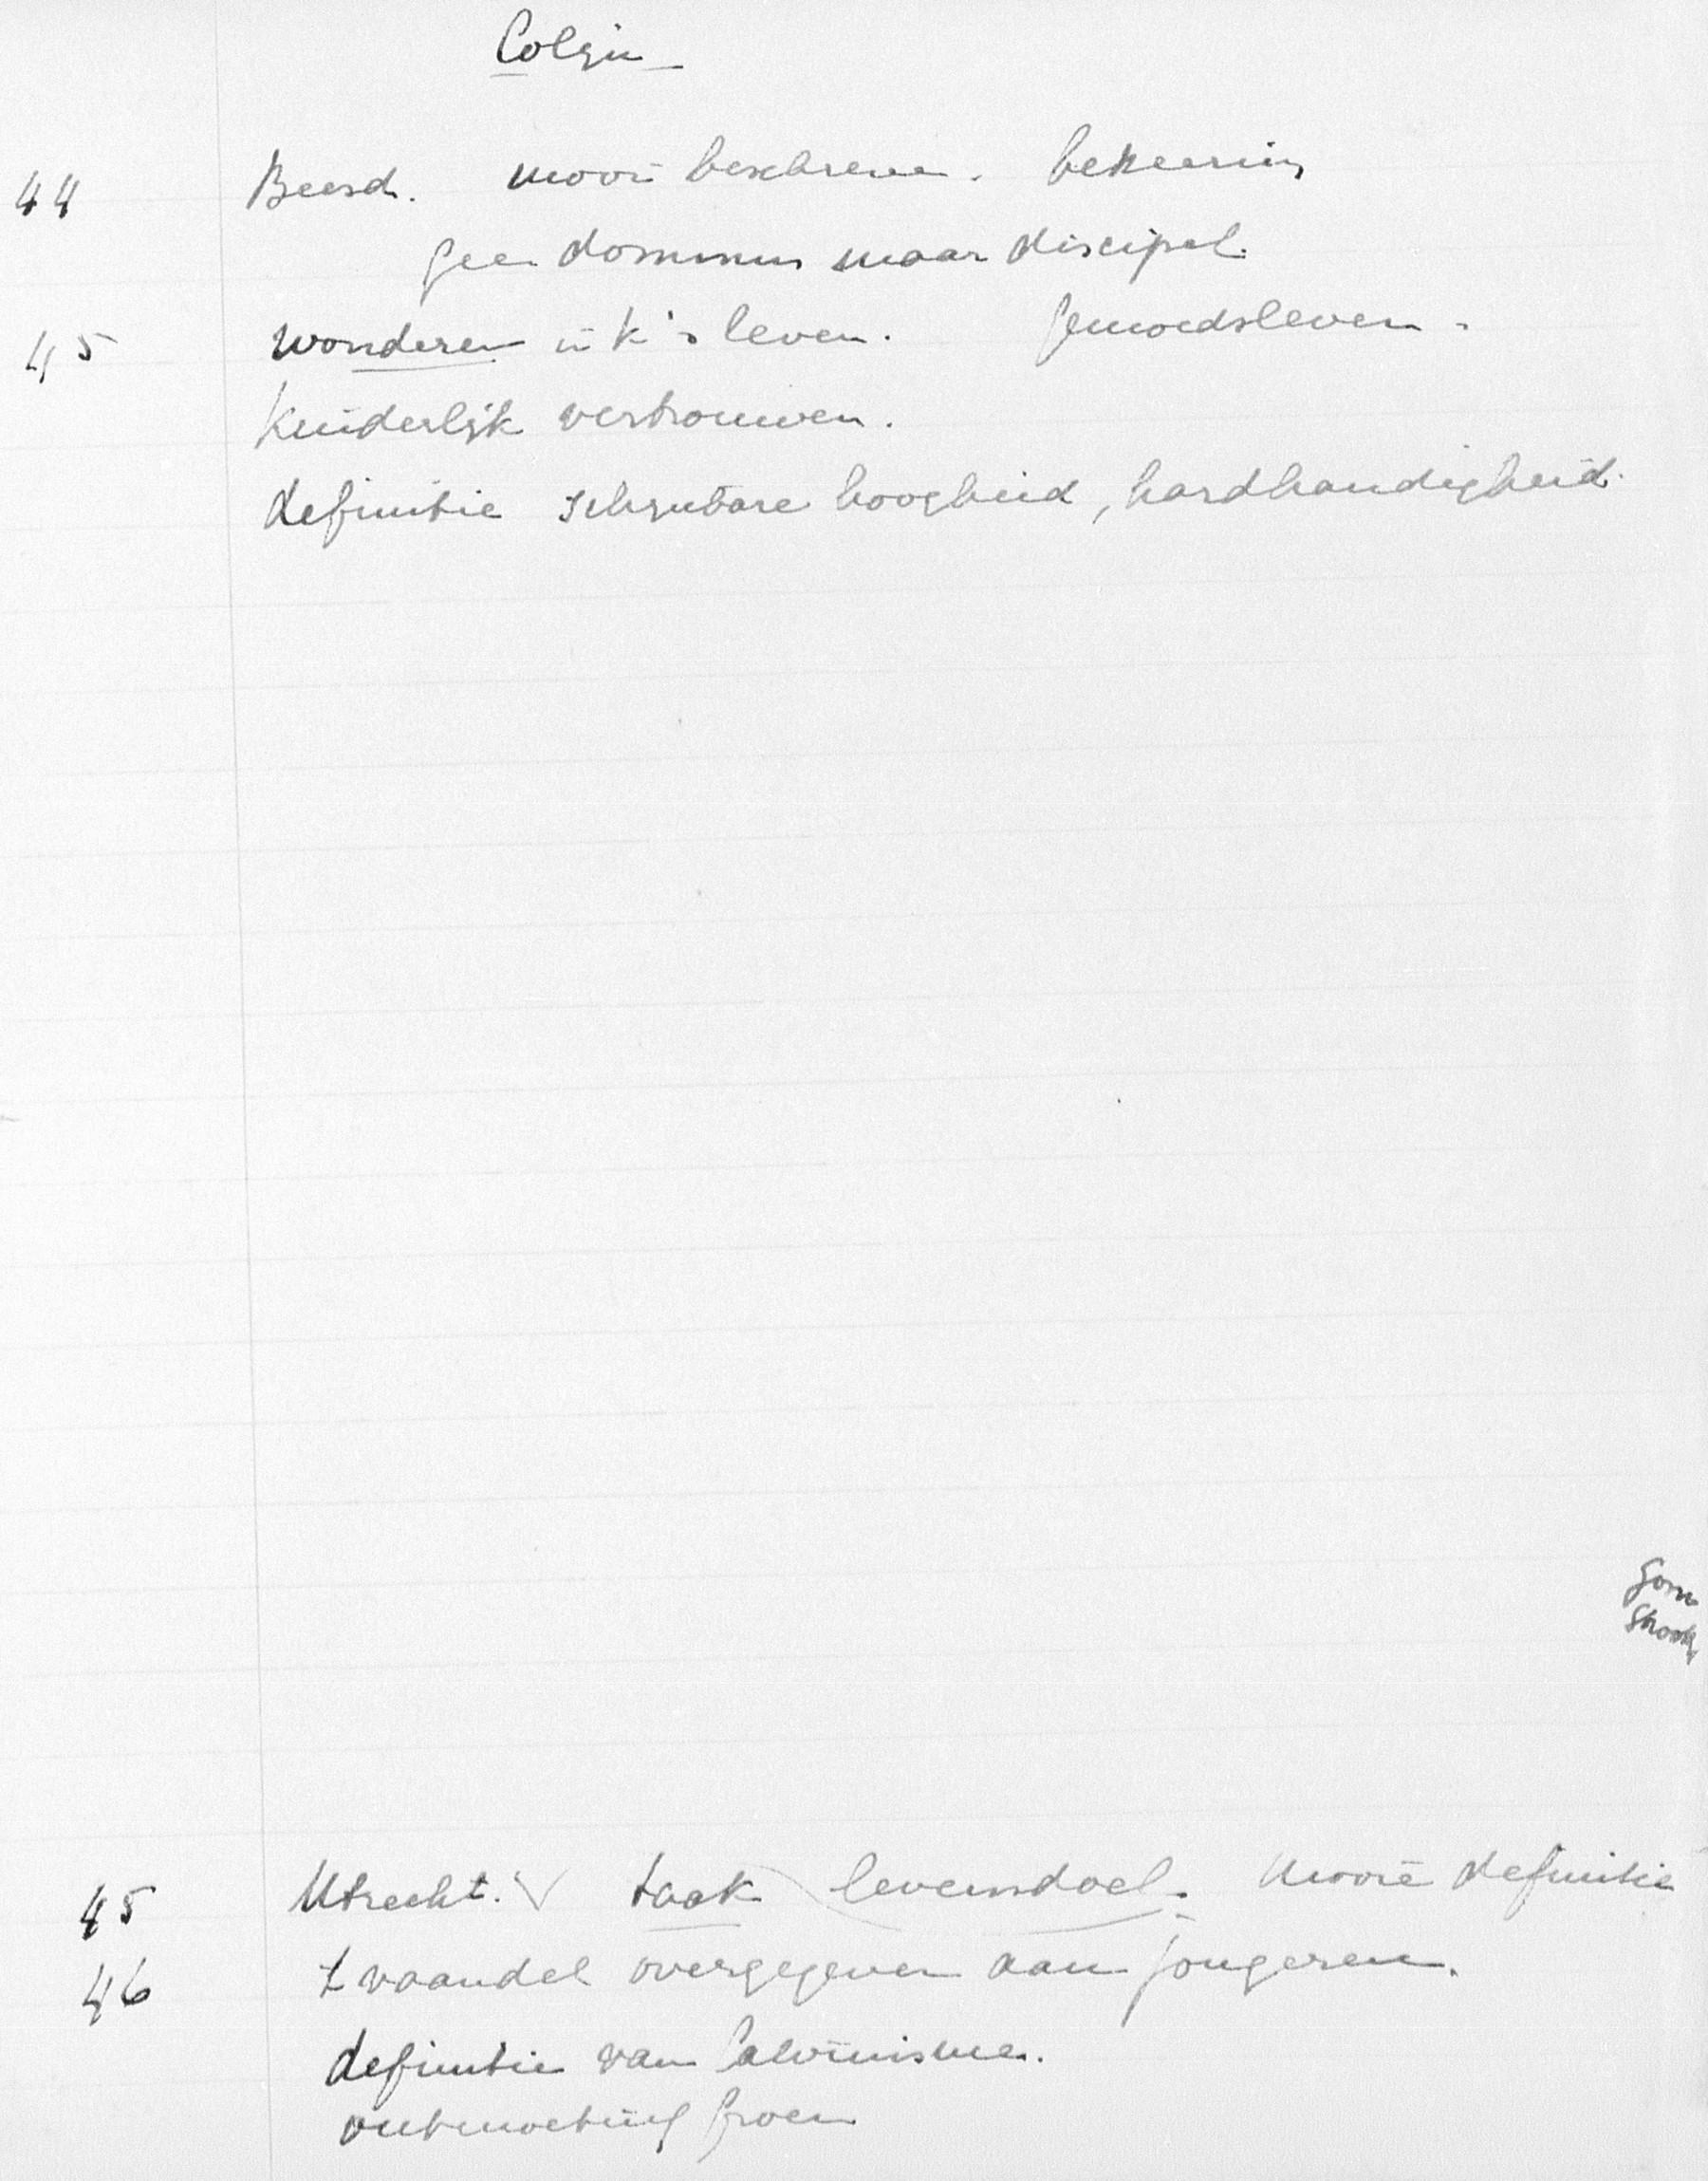 Colijn
44 Beesd. mooi beschreven. bekeering
geen dominus maar discipel.
45 wonderen in k's leven. gemoedsleven.
Kinderlijk vertrouwen.
definitie schijnbare hoogheid, hardhandigheid.
45 Utrecht. V taak levensdoel. Mooie definitie
46 t vaandel overgegeven aan jongeren.
definitie van Calvinisme.
ontmoeting Groen